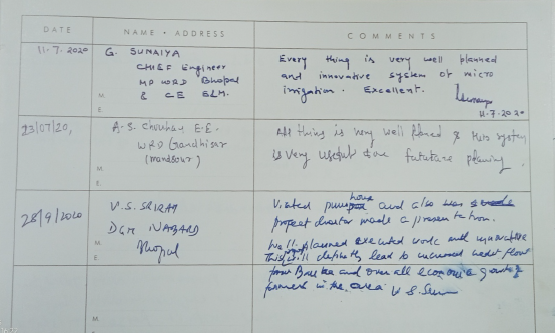 DATE NAME • ADDRESS COMMENTS
11-7-2020 G. SUNAIYA
CHIEF Engineer
MP WRD Bhopal
& CE
M.
E.
Every thing is very well planned
and innovative system of micro
irrigation. Excellent.
11-7-2020
23/07/20, A-S. Chouhan E.E.
WRD Gandhisar
(mandsour)
M.
E.
All thing is very well planed & this system
is very useful for future planing.
28/9/2020 V.S. SRIRAM
DGM NABARD
Bhopal
M.
E.
Visited pump house and also was
project director made a presentation.
Well planned executed work with innovative
This will definetly lead to increased water flow
from and over all economic
farmers in the area V.S.
M.